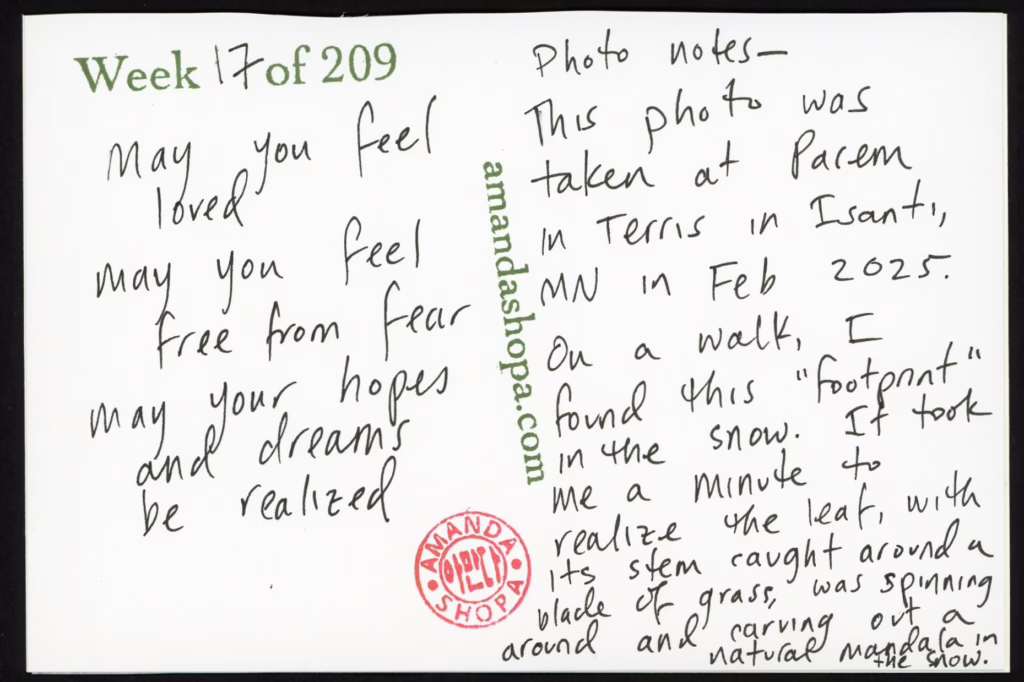 Week 17 of 209
May you feel
loved
may you feel
free from fear
may your hopes
and dreams
be realized
amandashopa.com
AMANDA
아만다
SHOPA
Photo notes—
This photo was
taken at Pacem
in Terris in Isanti,
MN in Feb 2025.
On a walk, I
found this "footprint"
in the snow. It took
me a minute to
realize the leaf, with
its stem caught around a
blade of grass, was spinning
around and carving out a
natural mandala in
the snow.